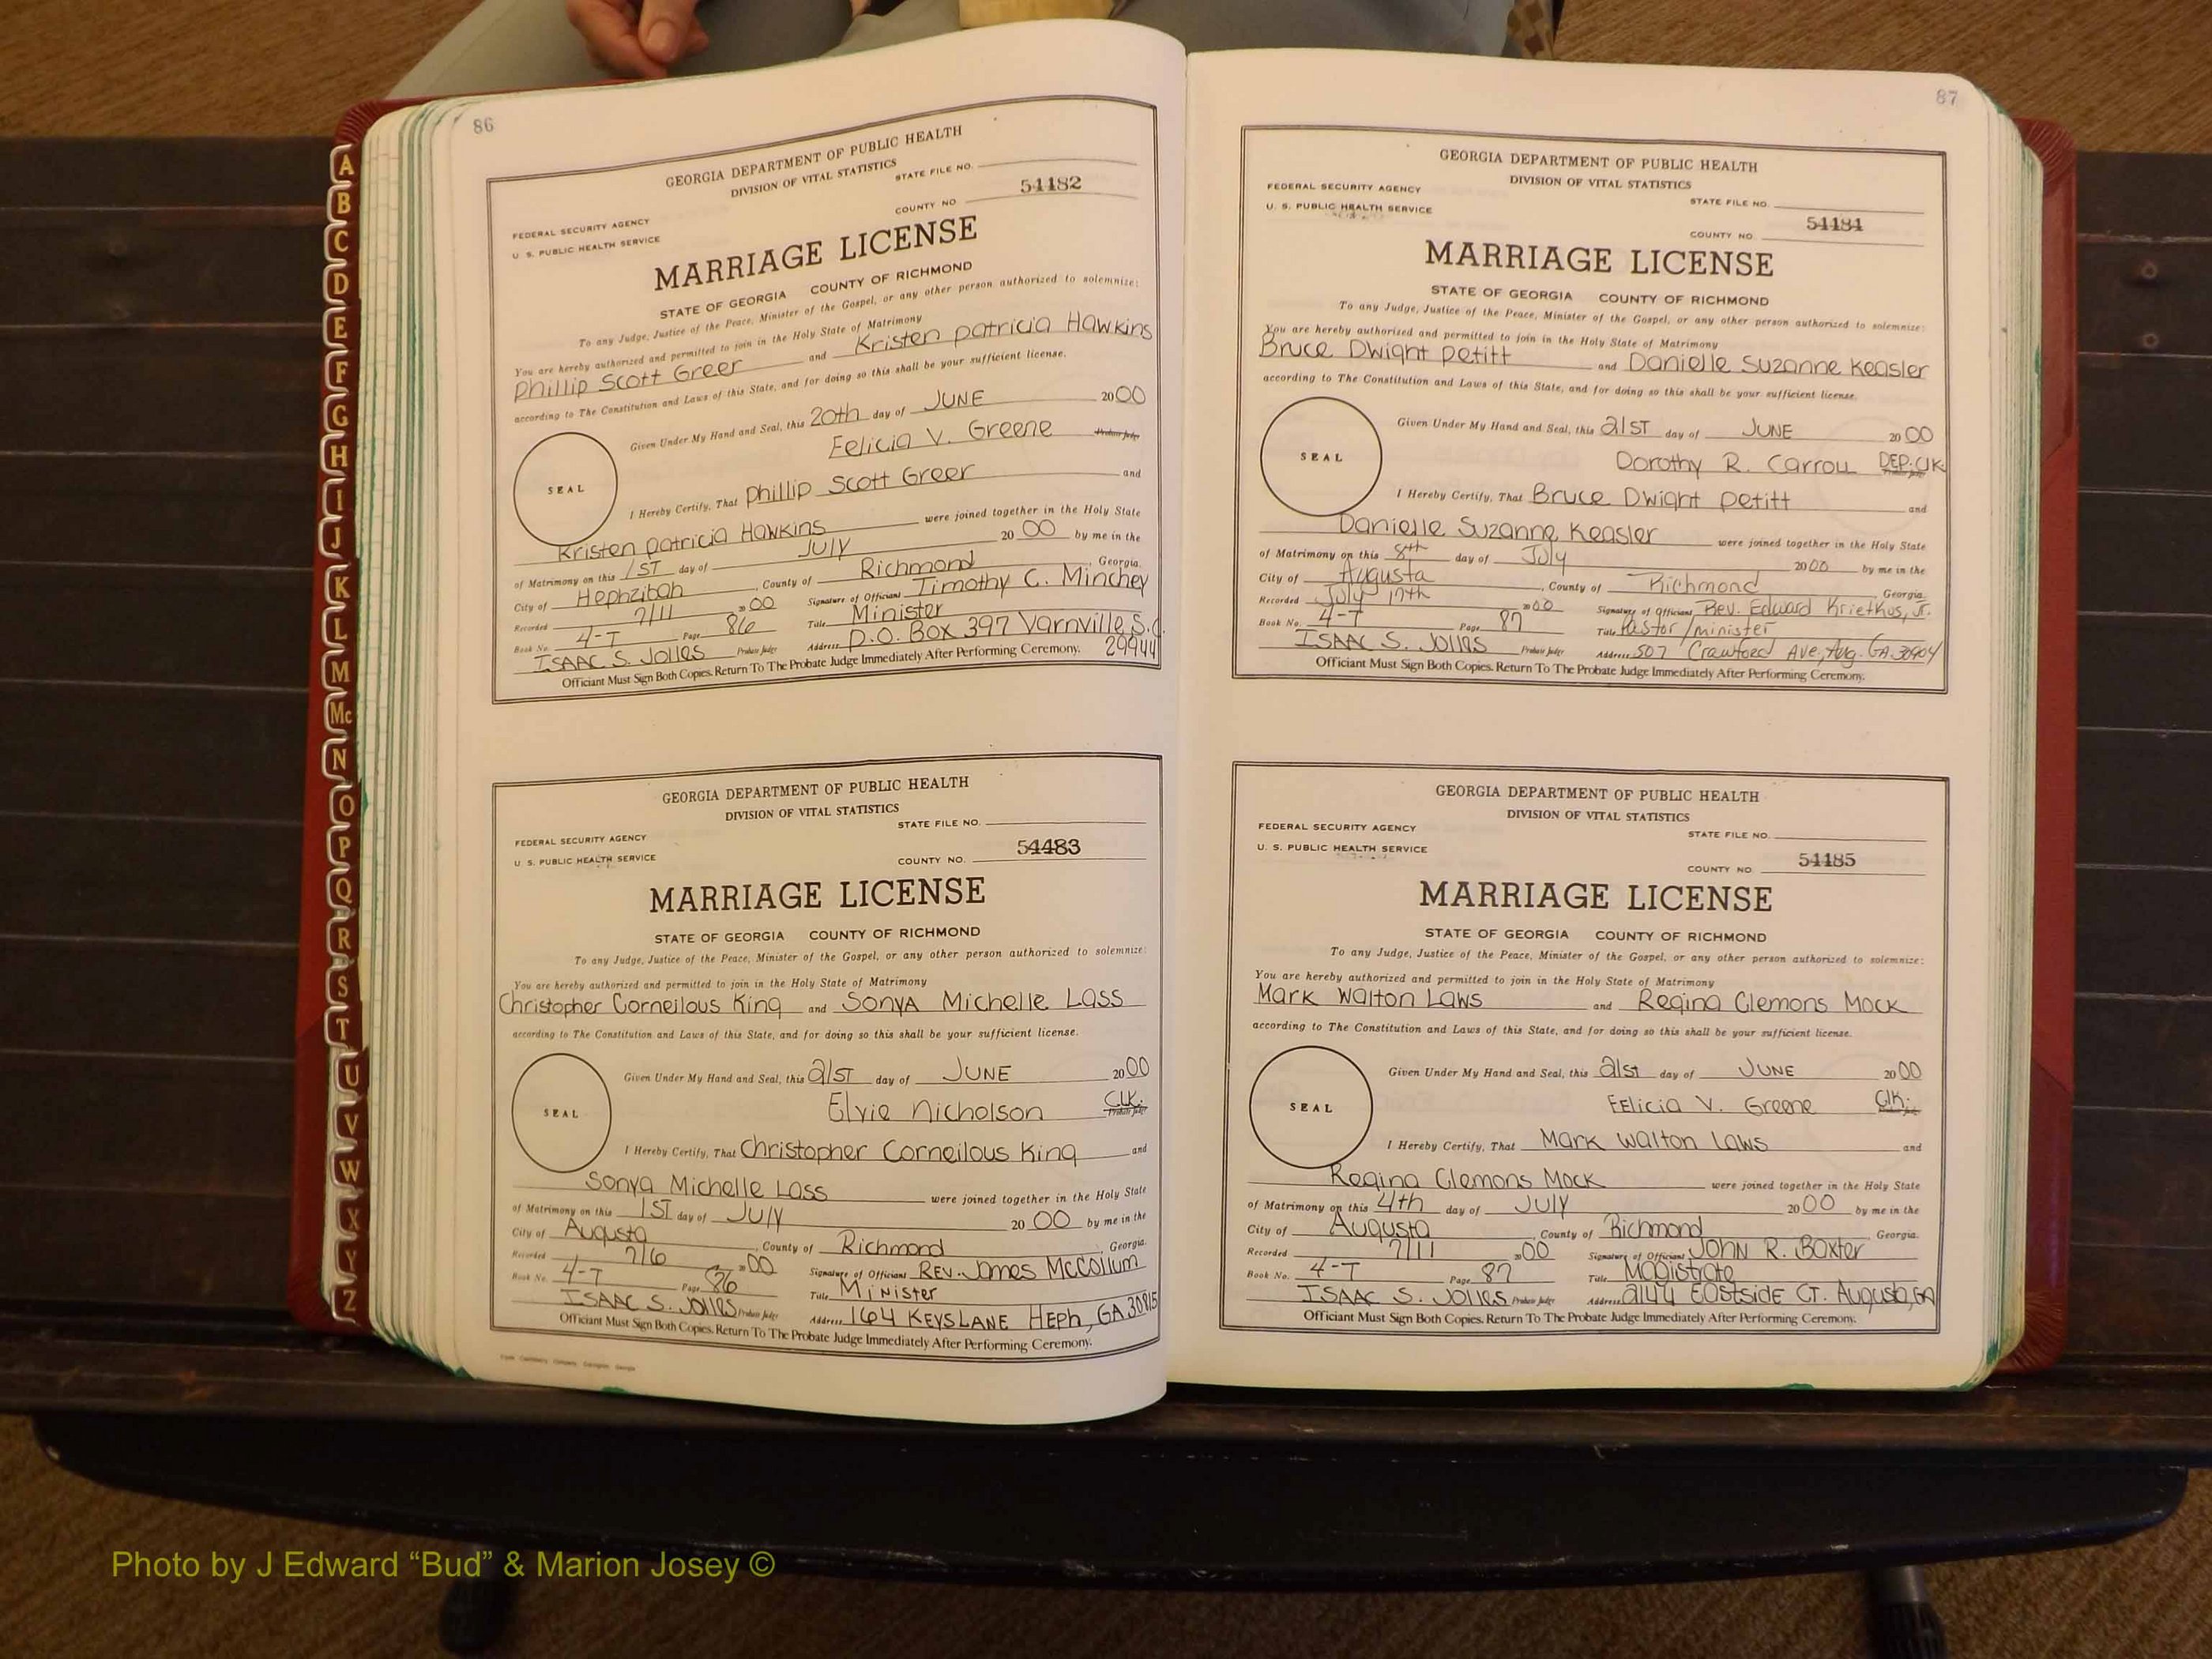 86
GEORGIA DEPARTMENT OF PUBLIC HEALTH
DIVISION OF VITAL STATISTICS
STATE FILE NO.
FEDERAL SECURITY AGENCY
U. S. PUBLIC HEALTH SERVICE
COUNTY NO 54182
MARRIAGE LICENSE
STATE OF GEORGIA COUNTY OF RICHMOND
To any Judge, Justice of the Peace, Minister of the Gospel, or any other person authorized to solemnize:
You are hereby authorized and permitted to join in the Holy State of Matrimony
Phillip Scott Greer and Kristen Patricia Hawkins
according to The Constitution and Laws of this State, and for doing so this shall be your sufficient license.
Given Under My Hand and Seal, this 20th day of JUNE 2000
Felicia V. Greene Probate Judge
SEAL
I Hereby Certify, That Phillip Scott Greer and
Kristen Patricia Hawkins were joined together in the Holy State
of Matrimony on this 1ST day of JULY 2000 by me in the
City of Hephzibah, County of Richmond, Georgia.
Recorded 7/11 2000 Signature of Officiant Timothy C. Minchey
Book No. 4-T Page 86 Title Minister
ISAAC S. Jolles Probate Judge Address P.O. Box 397 Varnville, S.C. 29944
Officiant Must Sign Both Copies. Return To The Probate Judge Immediately After Performing Ceremony.
GEORGIA DEPARTMENT OF PUBLIC HEALTH
DIVISION OF VITAL STATISTICS
STATE FILE NO.
FEDERAL SECURITY AGENCY
U S. PUBLIC HEALTH SERVICE
COUNTY NO. 54483
MARRIAGE LICENSE
STATE OF GEORGIA COUNTY OF RICHMOND
To any Judge, Justice of the Peace, Minister of the Gospel, or any other person authorized to solemnize:
You are hereby authorized and permitted to join in the Holy State of Matrimony
Christopher Corneilous King and Sonya Michelle Lass
according to The Constitution and Laws of this State, and for doing so this shall be your sufficient license.
Given Under My Hand and Seal, this 21ST day of JUNE 2000
Elvie Nicholson CLK. Probate Judge
SEAL
I Hereby Certify, That Christopher Corneilous King and
Sonya Michelle Lass were joined together in the Holy State
of Matrimony on this 1ST day of JULY 2000 by me in the
City of Augusta, County of Richmond, Georgia.
Recorded 7/6 2000 Signature of Officiant REV. James McCollum
Book No. 4-T Page 86 Title Minister
ISAAC S. Jolles Probate Judge Address 164 KEYS LANE HEPh, GA 30815
Officiant Must Sign Both Copies. Return To The Probate Judge Immediately After Performing Ceremony.
87
GEORGIA DEPARTMENT OF PUBLIC HEALTH
DIVISION OF VITAL STATISTICS
FEDERAL SECURITY AGENCY
U. S. PUBLIC HEALTH SERVICE
STATE FILE NO.
COUNTY NO. 54184
MARRIAGE LICENSE
STATE OF GEORGIA COUNTY OF RICHMOND
To any Judge, Justice of the Peace, Minister of the Gospel, or any other person authorized to solemnize:
You are hereby authorized and permitted to join in the Holy State of Matrimony
Bruce Dwight Petitt and Danielle Suzanne Keasler
according to The Constitution and Laws of this State, and for doing so this shall be your sufficient license.
Given Under My Hand and Seal, this 21ST day of JUNE 2000
Dorothy R. Carroll DEP. Clk. Probate Judge
SEAL
I Hereby Certify, That Bruce Dwight Petitt and
Danielle Suzanne Keasler were joined together in the Holy State
of Matrimony on this 8th day of July 2000 by me in the
City of Augusta, County of Richmond Georgia.
Recorded July 17th 2000 Signature of Officiant Rev. Edward Krietkus, Jr.
Book No. 4-T Page 87 Title Pastor/minister
ISAAC S. Jolles Probate Judge Address 507 Crawford Ave, Aug. GA. 30904
Officiant Must Sign Both Copies. Return To The Probate Judge Immediately After Performing Ceremony.
GEORGIA DEPARTMENT OF PUBLIC HEALTH
DIVISION OF VITAL STATISTICS
FEDERAL SECURITY AGENCY
U. S. PUBLIC HEALTH SERVICE
STATE FILE NO.
COUNTY NO 54185
MARRIAGE LICENSE
STATE OF GEORGIA COUNTY OF RICHMOND
To any Judge, Justice of the Peace, Minister of the Gospel, or any other person authorized to solemnize:
You are hereby authorized and permitted to join in the Holy State of Matrimony
Mark Walton Laws and Regina Clemons Mock
according to The Constitution and Laws of this State, and for doing so this shall be your sufficient license.
Given Under My Hand and Seal, this 21st day of JUNE 2000
Felicia V. Greene Clk. Probate Judge
SEAL
I Hereby Certify, That Mark Walton Laws and
Regina Clemons Mock were joined together in the Holy State
of Matrimony on this 4th day of JULY 2000 by me in the
City of Augusta, County of Richmond Georgia.
Recorded 7/11 2000 Signature of Officiant John R. Baxter
Book No. 4-T Page 87 Title Magistrate
ISAAC S. Jolles Probate Judge Address 2144 Eastside CT. Augusta, GA
Officiant Must Sign Both Copies. Return To The Probate Judge Immediately After Performing Ceremony.
A
B
C
D
E
F
G
H
I
J
K
L
M
Mc
N
O
P
Q
R
S
T
U
V
W
X
Y
Z
Photo by J Edward “Bud” & Marion Josey ©